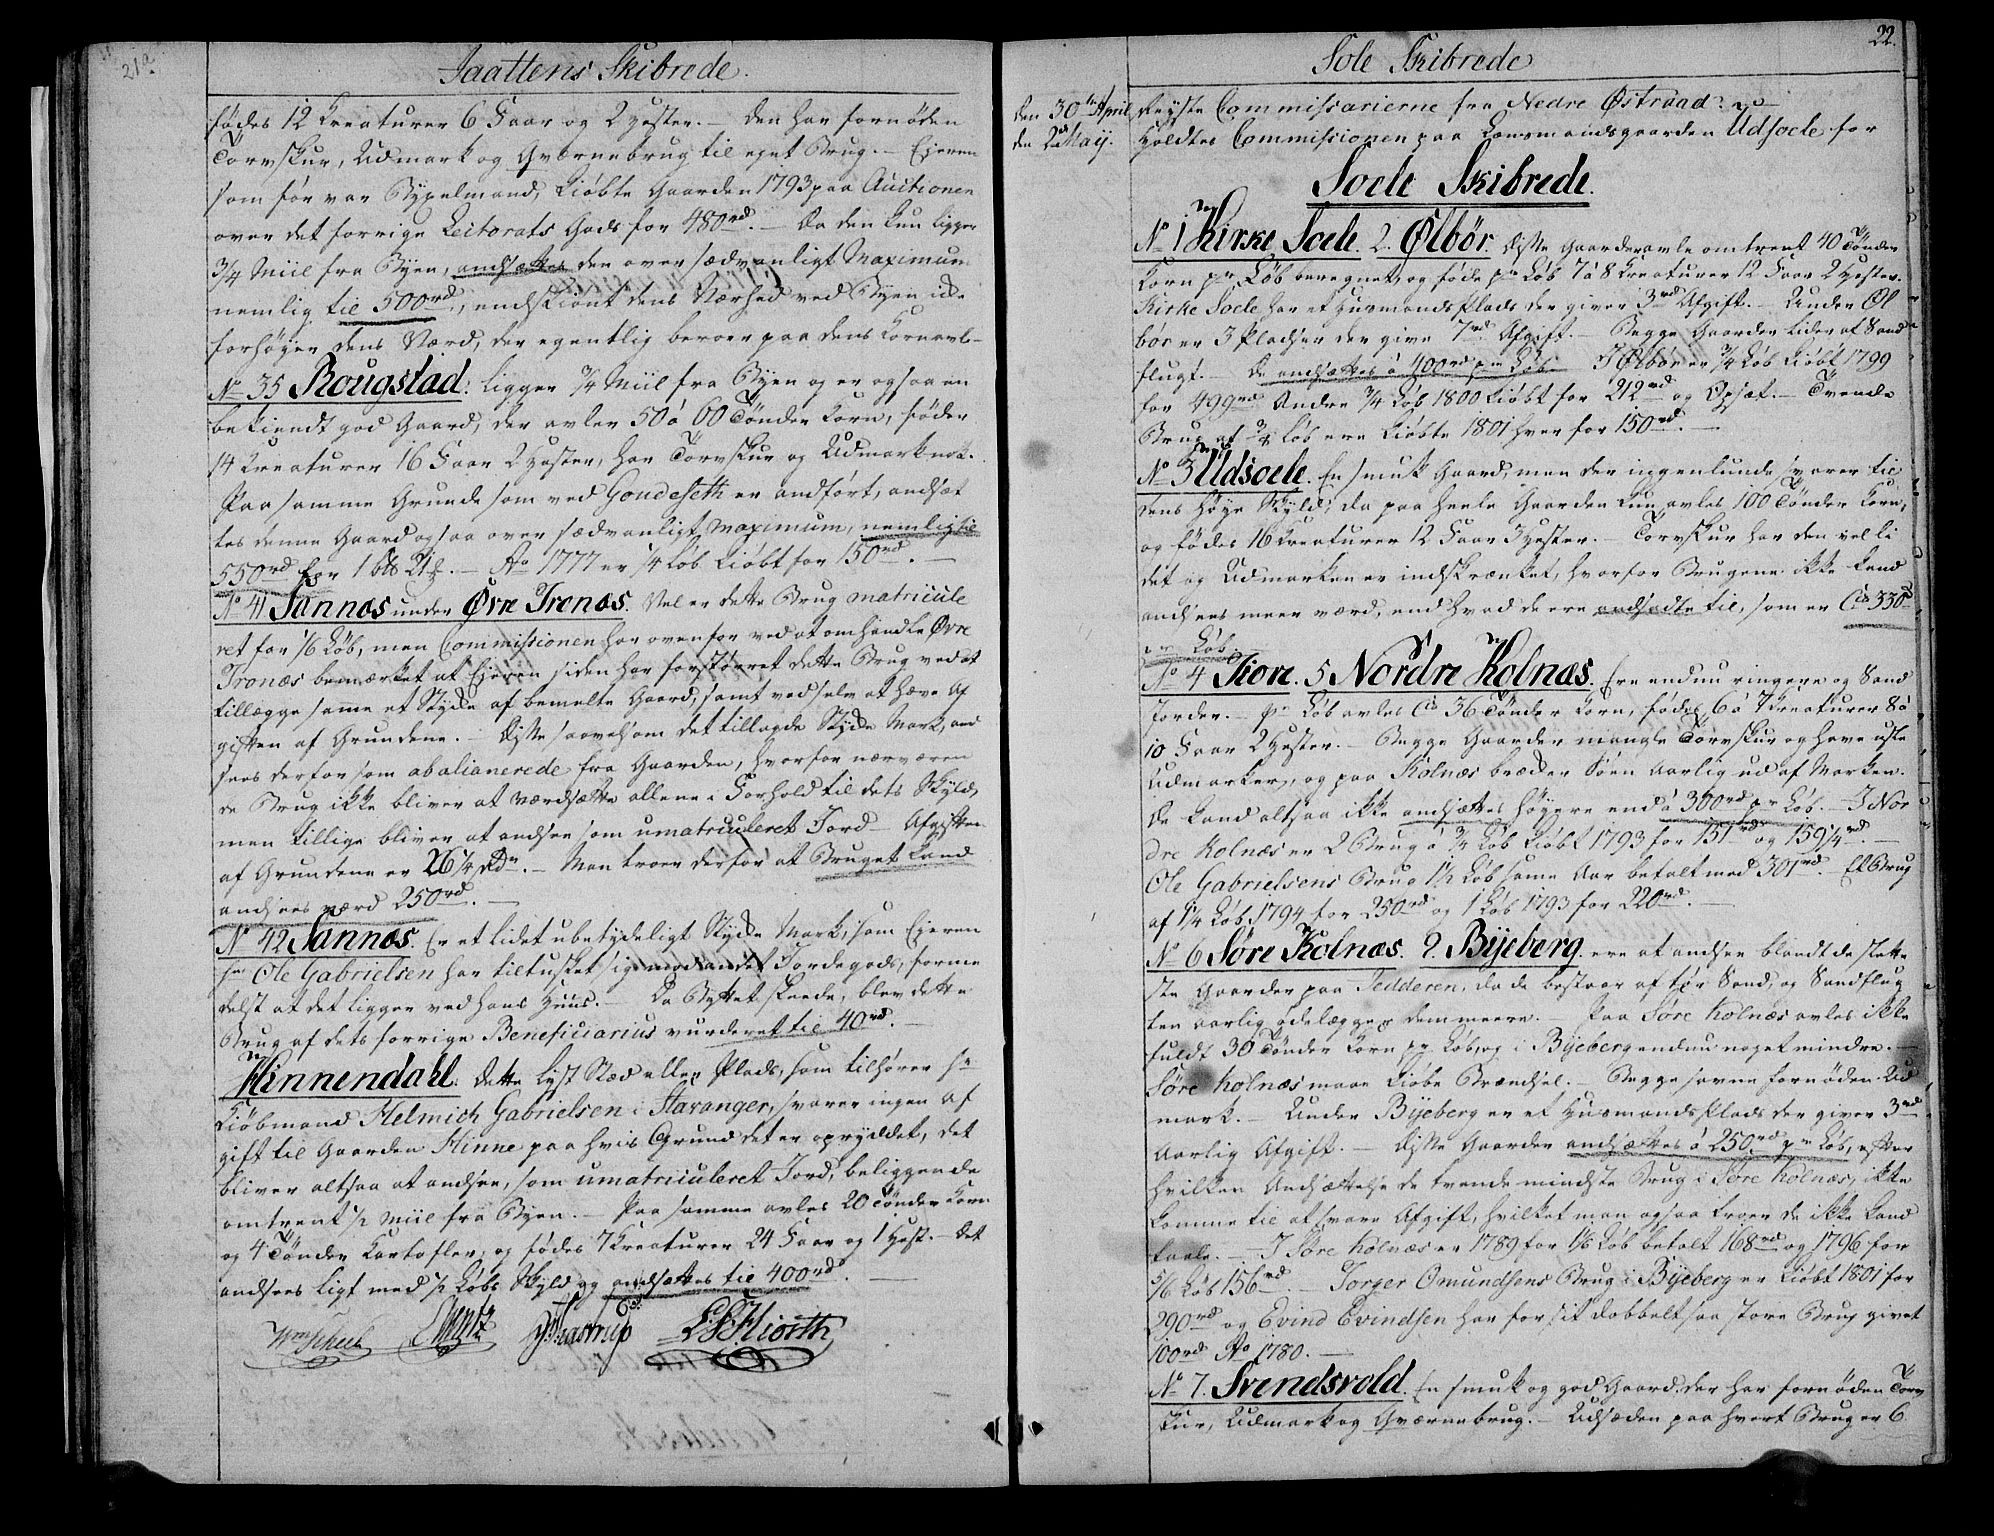 21a
Jaattens Skibrede.
fødes 12 Kreaturer 6 Faar og 2 Hester. – Den har fornøden
Torvskur, Udmark og Qværnebrug til eget Brug. – Ejeren
som før var Bygselmand, kiøbte Gaarden 1793 paa Auctionen
over det forrige Lectorats Gods for 480rd. – Da den kun ligger
3/4 Miil fra Byen, ansættes den over sædvanligt Maximum
nemlig til 500rd, endskiønt dens Nærhed ved Byen ikke
forhøyer dens Værd, der egentlig beroer paa dens Kornavl. –
No 35 Rougstad. ligger 3/4 Miil fra Byen og er ogsaa en
bekiendt god Gaard, der avler 50 à 60 Tønder Korn, føder
14 Kreaturer 16 Faar 2 Hester, har Torvskur og Udmark nok.
Paa samme Grunde som ved Gondeseth er anført, ansæt
tes denne Gaard ogsaa over sædvanligt Maximum, nemlig til
550rd for 1 . – Ao 1777 er 1/4 Løb kiøbt for 150rd. –
No 41 Sannæs under Øvre Tronæs. Vel er dette Brug matricule
ret for 1/6 Løb, men Commissionen har ovenfor ved at omhandle Øvre
Tronæs bemærket at Ejeren siden har forstørret dette Brug ved at
tillægge samme et Stykke af bemelte Gaard, samt ved selv at hæve Af
giften af Grundene. – Disse saavelsom det tillagde Stykke Mark, and
sees derfor som abalianerede fra Gaarden, hvorfor nærværen
de Brug ikke bliver at værdsætte allene i Forhold til dets Skyld,
men tillige bliver at ansee som umatriculeret Jord – Afgiften
af Grundene er 26 1/4 Rdr. – Man troer derfor at Bruget kand
ansees værd 250rd. –
No 42 Sannæs. Er et lidet ubetydeligt Stykke Mark, som Ejeren
Hr Ole Gabrielsen har tiltusket sig mod andet Jordegods, forme
delst at det ligger ved hans Huus. – Da Byttet skeede, blev dette
Brug af dets forrige Beneficiarius vurderet til 40rd. –
Hinnendahl. Dette Lyst Stæd eller Plads, som tilhører Hr
Kiøbmand Helmich Gabrielsen i Stavanger, svarer ingen Af
gift til Gaarden Hinne paa hvis Grund det er opryddet, det
bliver altsaa at ansee, som umatriculeret Jord, beliggende
omtrent 1/2 Miil fra Byen. – Paa samme avles 20 Tønder Korn
og 4 Tønder Kartofler, og fødes 7 Kreaturer 24 Faar og 1 Hest. – Det
ansees ligt med 1/2 Løbs Skyld og ansættes til 400rd. –
Wm Scheel
LSHiorth
22.
Sole Skibrede
den 30te April Reyste Commissarierne fra Nedre Østraad. –
den 2d May. Holdtes Commissionen paa Lensmandsgaarden Udsoele for
Soele Skibrede.
No 1 Kirke Soele. 2. Ølbør. Disse Gaarder avle omtrent 40 Tønder
Korn pr Løb beregnet, og føde pr Løb 7 à 8 Kreaturer 12 Faar 2 Hester.
Kirke Soele har et Huusmands Plads der giver 3rd Afgift. – Under Øl
bør er 3 Pladser der give 7rd Afgift. – Begge Gaarder lider af Sand
flugt. – De ansættes à 400rd pr Løb. – I Ølbør er 3/4 Løb kiøbt 1799
for 499rd Andre 3/4 Løb 1800 kiøbt for 212rd og Opsæt. – Tvende
Brug af 3/8 Løb ere kiøbte 1801 hver for 150rd. –
No 3 Udsoele. En smuk Gaard, men der ingenlunde svarer til
dens høye Skyld; da paa heele Gaarden kun avles 100 Tønder Korn,
og fødes 16 Kreaturer 12 Faar 3 Hester. – Torvskur har den vel li
det og Udmarken er indskrænket, hvorfor Brugene ikke kand
ansees meer værd, end hvad de ere ansadte til, som er Ca 330rd
pr Løb. –
No 4 Tiore. 5 Nordre Kolnæs. Ere endnu ringere og Sand
Jorder. – Pr Løb avles Ca 36 Tønder Korn, fødes 6 à 7 Kreaturer 8 à
10 Faar 2 Hester. – Begge Gaarder mangle Torvskur og have usle
Udmarker, og paa Kolnæs bræder Søen Aarlig ud af Marken.
De kand altsaa ikke ansættes høyere end à 300rd pr Løb. – I Nor
dre Kolnæs er 2 Brug à 3/4 Løb kiøbt 1793 for 151rd og 159 1/4rd. –
Ole Gabrielsens Brug 1 1/2 Løb same Aar betalt med 301rd. – Et Brug
af 1 1/4 Løb 1794 for 250rd og 1 Løb 1793 for 220rd. –
No 6 Søre Kolnæs. 9. Byeberg. ere at ansee blandt de slette
ste Gaarder paa Jedderen, da de bestaar af tør Sand, og Sandflug
ten aarlig ødelægger dem meere. – Paa Søre Kolnæs avles ikke
fuldt 30 Tønder Korn pr Løb, og i Byeberg endnu noget mindre. –
Søre Kolnæs maae kiøbe Brændsel. – Begge savne fornøden Ud
mark. – Under Byeberg er et Huusmands Plads der giver 3rd
Aarlig Afgift. – Disse Gaarder ansættes à 250rd pr Løb, efter
hvilken Ansættelse de tvende mindste Brug i Søre Kolnæs, ikke
komme til at svare Afgift, hvilket man ogsaa troer de ikke kand
taale. – I Søre Kolnæs er 1789 for 1 1/6 Løb betalt 168rd og 1796 for
5/6 Løb 156rd. – Torger Omundsens Brug i Byeberg er kiøbt 1801 for
290rd og Evind Evindsen har for sit dobbelt saa store Brug givet
100rd Ao 1780. –
No 7. Svendsvold. En smuk og god Gaard, der har fornøden Torv
skur, Udmark og Qværnebrug. – Udsæden paa hvert Brug er 6